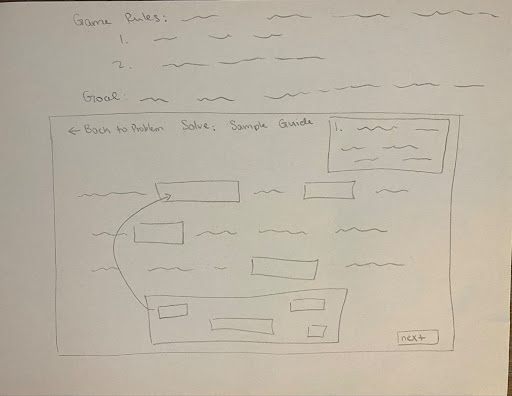 Game Rules:
1.
2.
Goal:
← Back to Problem Solve: Sample Guide 1.
next